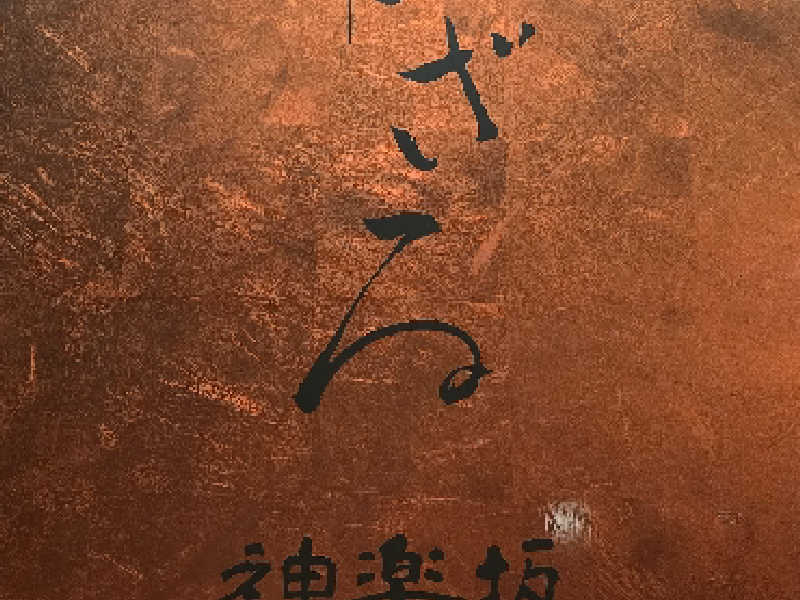 ざる
神楽坂